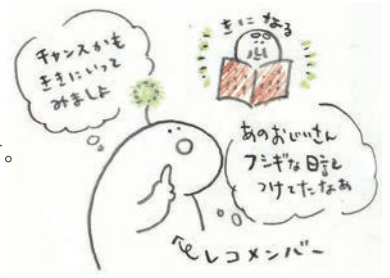 チャンスかも
ききにいって
みましょ
きになる
あのおじいさん
フシギな日記を
つけてたなあ
モレコメンバー
。